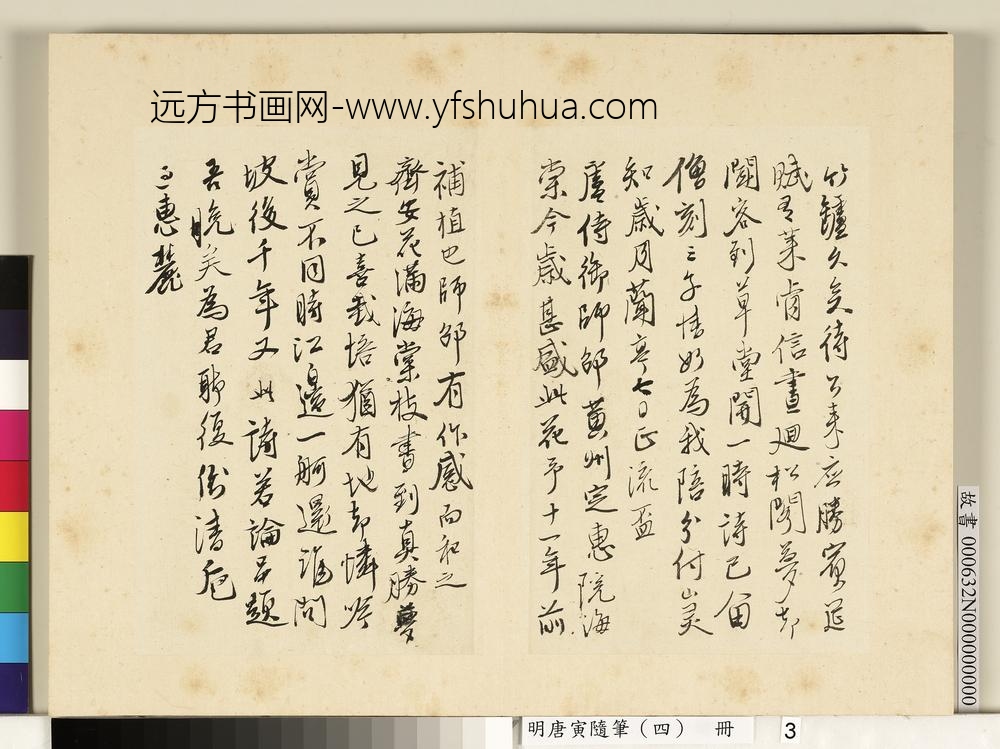 远方书画网-www.yfshuhua.com
竹罏久矣待公来应勝賓筵
賦有萊肯信晝廻松閣夢却
聞客到草堂開一時詩已留
僧刻三子情好為我陪分付山灵
知歲月蘭亭七日正流盃
唐侍御師邵黃州定惠院海
棠今歲甚盛此花予十一年前
補植也師邵有作感而和之
齊安花滿海棠枝書到真勝夢
見之已喜栽培猶有地却憐吟
賞不同時江邊一舸還誰問
坡後千年又此詩若論品題
吾晚矣為君聊復倒清巵
惠麓
故書 000632N000000000
明唐寅隨筆(四) 冊 3